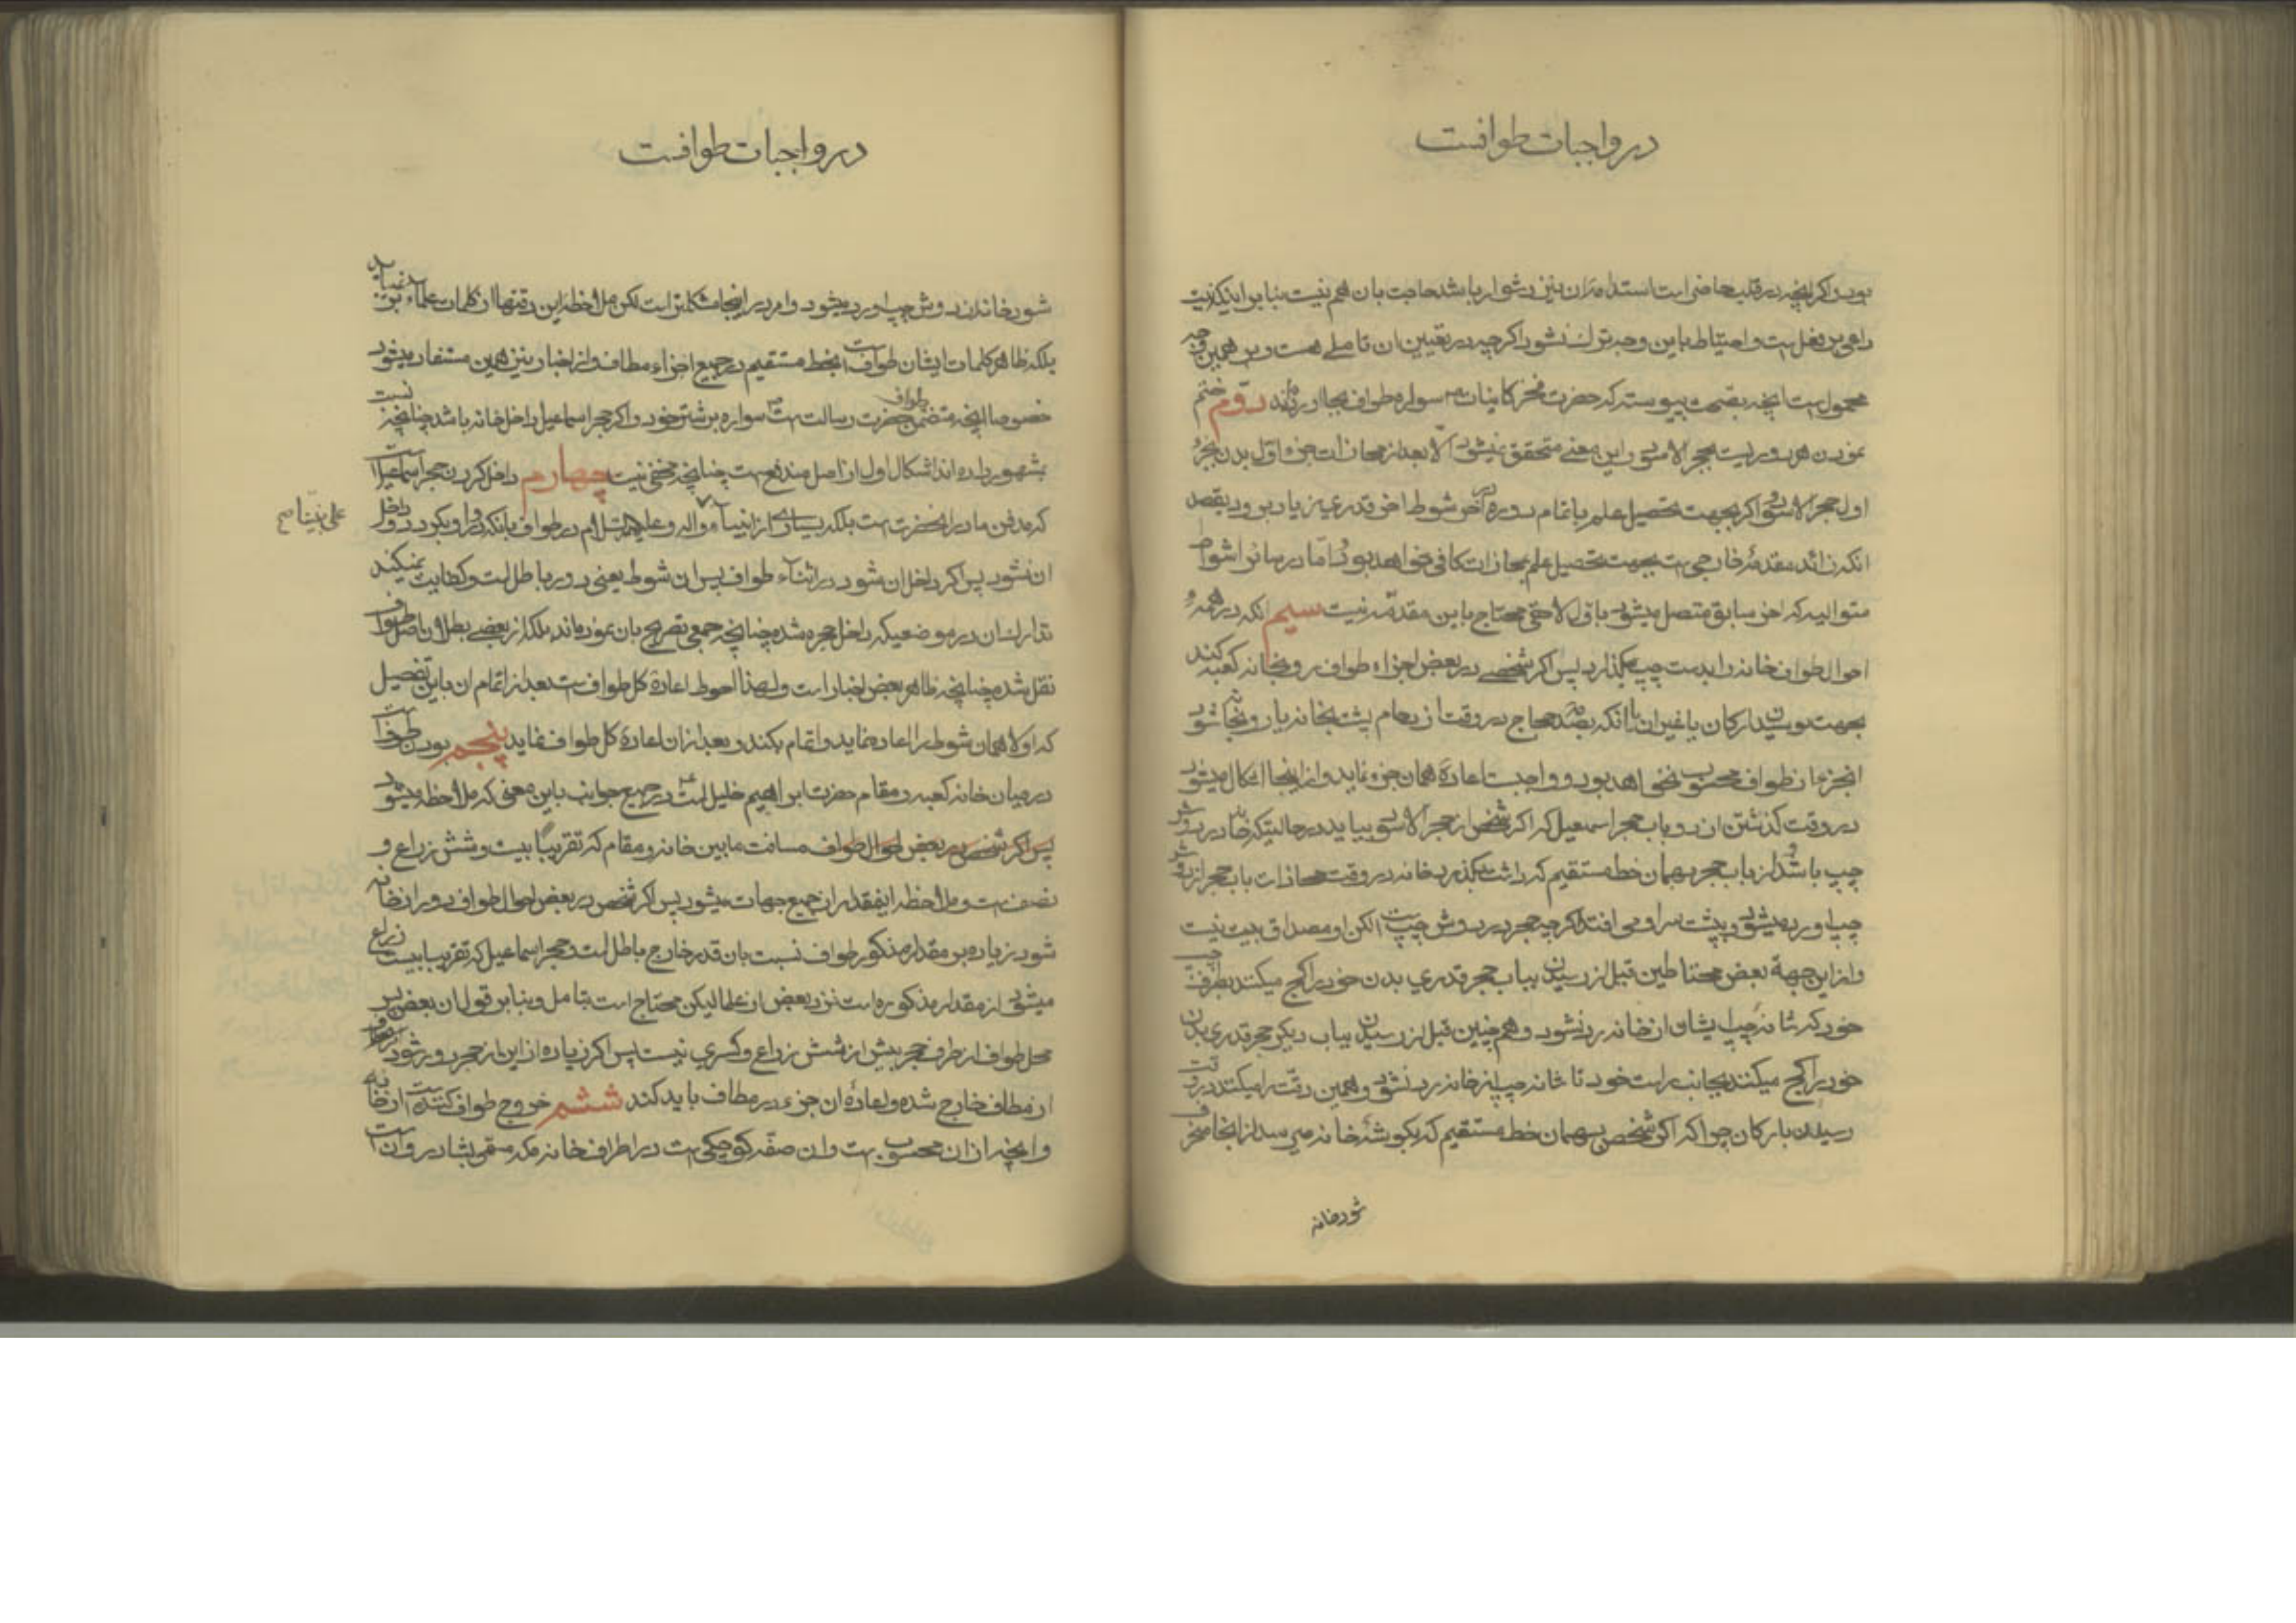 در واجبات طوافست
بودن اگر انچه در قلب حاضر است استدامه ان نیز دشوار باشد حاجت بان هم نیست بنا بر اینکه نیت
داعی بر فعل است و احتیاط باین وجه ترک نشود اگر چه در تعیین ان تاملی هست و بر همین وجه
محمول است انچه بصحت پیوسته که حضرت فخر کاینات سواره طواف بجا اورده‌اند دوّم ختم
نمودن هر دوریست بحجر الاسود و این معنی متحقق نمیشود الا بعد از محاذات جزو اوّل بدن بجزء
اول حجر الاسود و اگر بجهت تحصیل علم باتمام دوره در آخر شوط اخر قدری زیاد برود بقصد
انکه زائد مقدمهٔ خارجی است بجهت تحصیل علم بمحاذات کافی خواهد بود و امّا در سائر اشواط
متوالیه که اخر سابق متصل میشود باوّل لاحق محتاج باین مقدّمه نیست سیم انکه در همهٔ
احوال طواف خانه را بدست چپ بگذارد پس اگر شخصی در بعض اجزاء طواف رو بخانه کعبه کند
بجهت بوسیدن ارکان یا غیر ان یا انکه بصدمه حجاج در وقت ازدحام پشت بخانه یا رو بخانه شود
انجزء از طواف محسوب نخواهد بود و واجبست اعادهٔ همان جزء نماید و از اینجا اشکال میشود
در وقت گذشتن از دو باب حجر اسمعیل که اگر شخص از حجر الاسود بیاید در حالیتکه خانه در دوش
چپ باشد و از باب حجر بهمان خط مستقیم که داشت بگذرد خانه در وقت محاذات باب حجر از دوش
چپ او رد میشود و پشت سر او می افتد اگر چه حجر در دوش چپ است لکن او مصداق بیت نیست
و از این جهة بعض محتاطین قبل از رسیدن بباب حجر قدری بدن خود را کج میکنند بطرف چپ
خود که شانه چپ ایشان از خانه رد نشود و همچنین قبل از رسیدن بباب دیگر حجر قدری بدن
خود را کج میکنند بجانب راست خود تا شانه چپ از خانه رد نشود و همین دقّت را میکنند در وقت
رسیدن بارکان چرا که اگر شخص بهمان خط مستقیم که بگوشهٔ خانه میرسد از انجا منحرف
شود خانه
در واجبات طوافست
شود خانه از دوش چپ او رد میشود و امر در اینجا مشکلتر است لکن ملاحظه این دقتها از کلمات علماء بر نمیاید
بلکه ظاهر کلمات ایشان طواف است بخط مستقیم در جمیع اجزاء مطاف و از اخبار نیز همین مستفاد میشود
خصوصا انچه متضمن طواف حضرت رسالت است سواره بر شتر خود و اگر حجر اسماعیل داخل خانه باشد چنانچه نسبت
بشهور داده اند اشکال اول از اصل مندفع است چنانچه مخفی نیست چهارم داخل کردن حجر اسماعیل است
که مدفن مادر انحضرت است بلکه بسیاری از انبیاء و اله و علیهم السلام در طواف بانکه دور او بگردد و داخل
علی نبینا صح
ان نشود پس اگر داخل ان شود در اثناء طواف پس ان شوط یعنی دور باطل است و کفایت نمیکند
تدارک ان در موضعیکه داخل حجره شده چنانچه جمعی تصریح بان نموده‌اند بلکه از بعضی بطلان اصل طواف
نقل شده چنانچه ظاهر بعض اخبار است و لهذا احوط اعادهٔ کل طواف است بعد از اتمام ان باین تفصیل
که اولا همان شوط را اعاده نماید و اتمام بکند و بعد از ان اعادهٔ کل طواف نماید پنجم بودن طواف است
در میان خانه کعبه و مقام حضرت ابراهیم خلیل است در جمیع جوانب باین معنی که ملاحظه میشود
پس اگر شخص در بعض احوال طواف مسافت مابین خانه و مقام که تقریبًا بیست و شش زراع و
نصف است و ملاحظه اینقدر از جمیع جهات میشود پس اگر شخص در بعض احوال طواف دور از خانه
شود زیاده بر مقدار مذکور طواف نسبت بان قدر خارج باطل است و حجر اسماعیل که تقریبا بیست زراع
میشود از مقدار مذکوره است نزد بعض از علما لیکن محتاج است بتامل و بنا بر قول ان بعض پس
محل طواف از طرف حجر بیش از شش زراع و کسری نیست پس اگر زیاده از این از حجر دور شود
از مطاف خارج شده و اعادهٔ ان جزء در مطاف باید کند ششم خروج طواف کننده است از خانه
و انچه از ان محسوب است و ان صفّه کوچکی است در اطراف خانه مکه مسمی بشادروان است